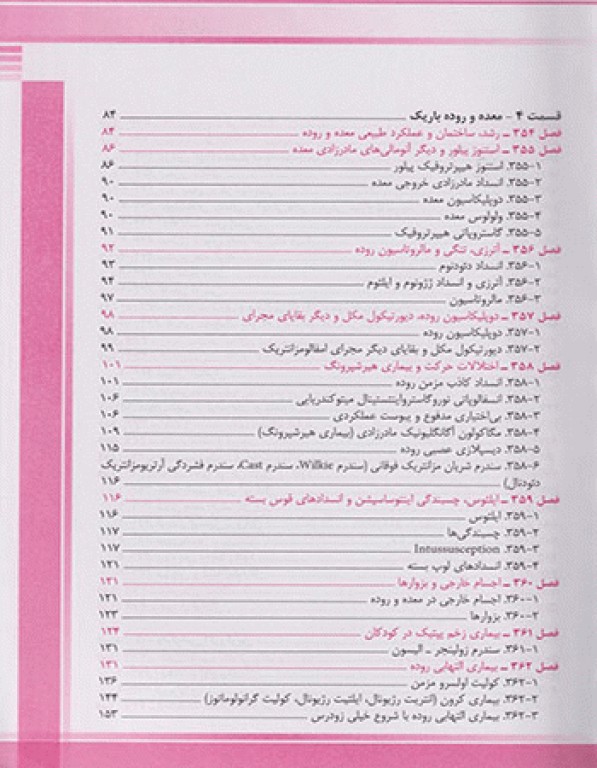 قسمت ۴ - معده و روده باریک ۸۴
فصل ۳۵۴ ـ رشد، ساختمان و عملکرد طبیعی معده و روده ۸۴
فصل ۳۵۵ ـ استنوز پیلور و دیگر آنومالی‌های مادرزادی معده ۸۶
۳۵۵-۱. استنوز هیپرتروفیک پیلور ۸۶
۳۵۵-۲. انسداد مادرزادی خروجی معده ۹۰
۳۵۵-۳. دوپلیکاسیون معده ۹۰
۳۵۵-۴. ولولوس معده ۹۰
۳۵۵-۵. گاستروپاتی هیپرتروفیک ۹۱
فصل ۳۵۶ ـ آترزی، تنگی و مالروتاسیون روده ۹۲
۳۵۶-۱. انسداد دئودنوم ۹۳
۳۵۶-۲. آترزی و انسداد ژژونوم و ایلئوم ۹۴
۳۵۶-۳. مالروتاسیون ۹۷
فصل ۳۵۷ ـ دوپلیکاسیون روده، دیورتیکول مکل و دیگر بقایای مجرای ۹۸
۳۵۷-۱. دوپلیکاسیون روده ۹۸
۳۵۷-۲. دیورتیکول مکل و بقایای دیگر مجرای امفالومزانتریک ۹۹
فصل ۳۵۸ ـ اختلالات حرکت و بیماری هیرشپرونگ ۱۰۱
۳۵۸-۱. انسداد کاذب مزمن روده ۱۰۱
۳۵۸-۲. انسفالوپاتی نوروگاسترواینتستینال میتوکندریایی ۱۰۶
۳۵۸-۳. بی‌اختیاری مدفوع و یبوست عملکردی ۱۰۶
۳۵۸-۴. مگاکولون آگانگلیونیک مادرزادی (بیماری هیرشپرونگ) ۱۰۹
۳۵۸-۵. دیسپلازی عصبی روده ۱۱۵
۳۵۸-۶. سندرم شریان مزانتریک فوقانی (سندرم Wilkie، سندرم Cast، سندرم فشردگی آرتریومزانتریک
دئودنال) ۱۱۶
فصل ۳۵۹ ـ ایلئوس، چسبندگی اینتوساسپشن و انسدادهای قوس بسته ۱۱۶
۳۵۹-۱. ایلئوس ۱۱۶
۳۵۹-۲. چسبندگی‌ها ۱۱۷
۳۵۹-۳. Intussusception ۱۱۷
۳۵۹-۴. انسدادهای لوپ بسته ۱۲۱
فصل ۳۶۰ ـ اجسام خارجی و بزوارها ۱۲۱
۳۶۰-۱. اجسام خارجی در معده و روده ۱۲۱
۳۶۰-۲. بزوارها ۱۲۳
فصل ۳۶۱ ـ بیماری زخم پپتیک در کودکان ۱۲۴
۳۶۱-۱. سندرم زولینجر ـ الیسون ۱۳۱
فصل ۳۶۲ ـ بیماری التهابی روده ۱۳۱
۳۶۲-۱. کولیت اولسرو مزمن ۱۳۶
۳۶۲-۲. بیماری کرون (انتریت رژیونال، ایلئیت رژیونال، کولیت گرانولوماتوز) ۱۴۴
۳۶۲-۳. بیماری التهابی روده با شروع خیلی زودرس ۱۵۳